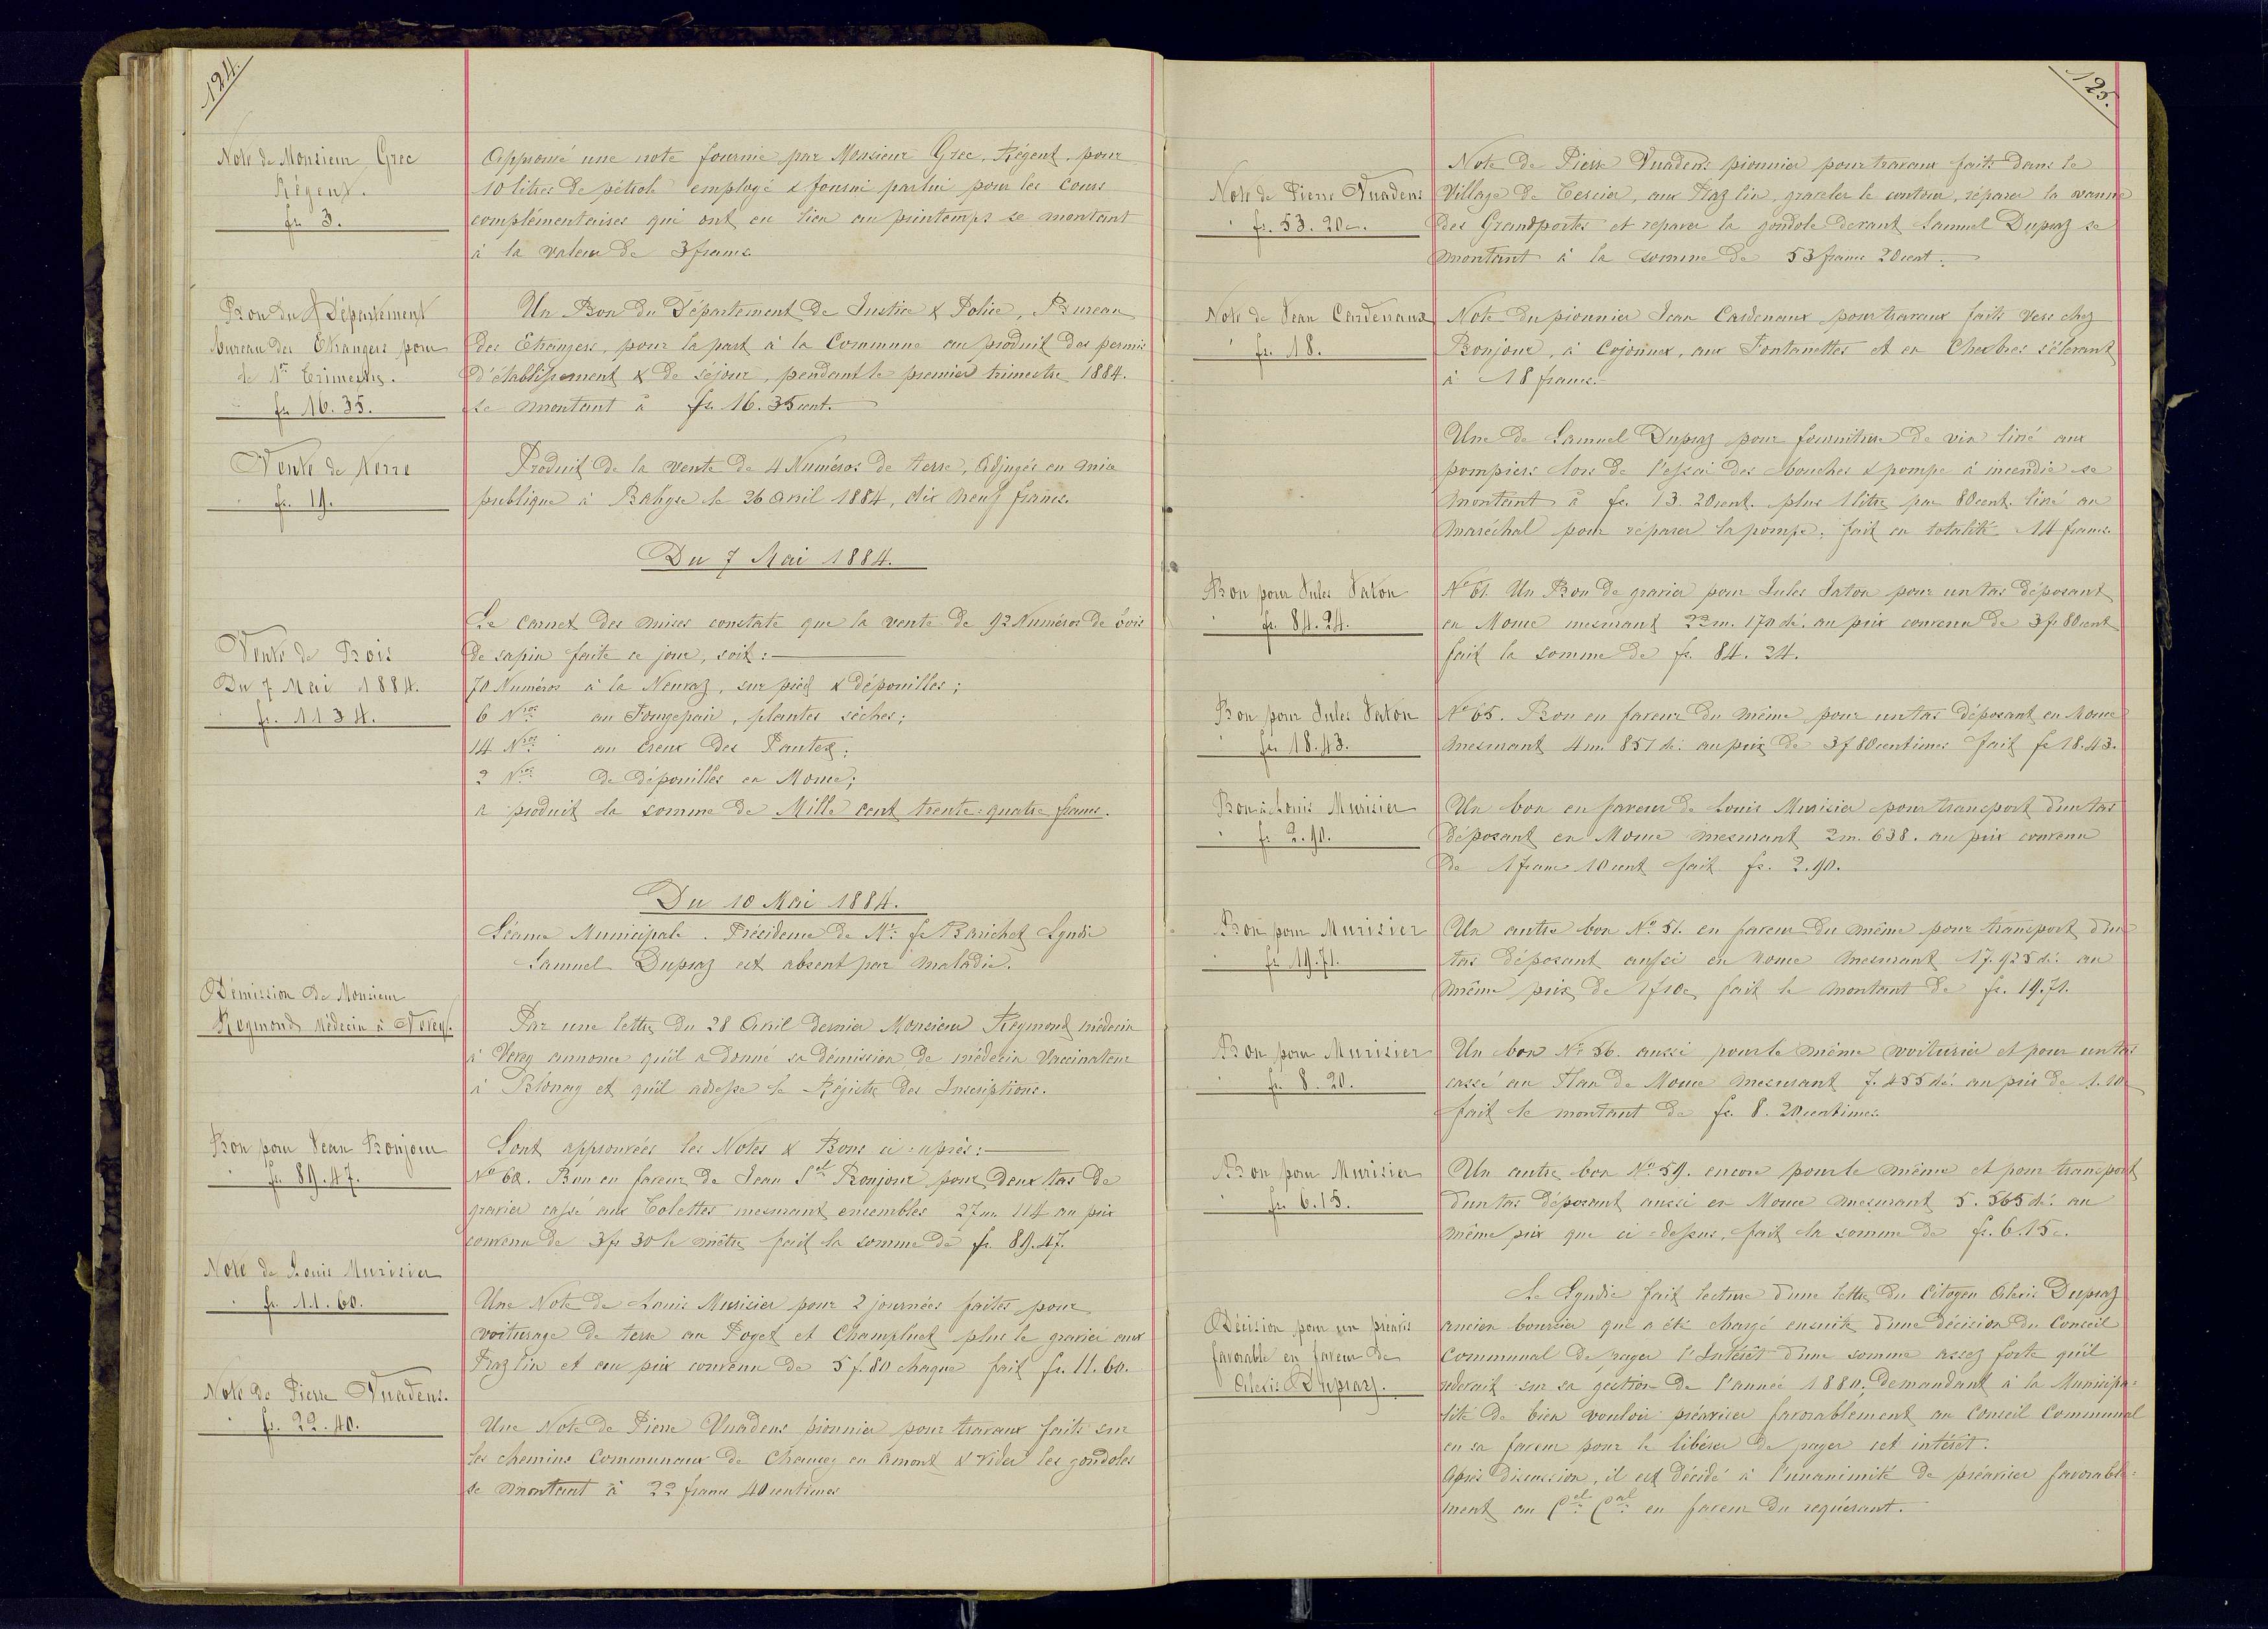 124.
Note de Monsieur Grec
Régent.
fr. 3.
Approuvé une note fournie par Monsieur Grec, Régent, pour
10 litres de pétrole employé & fourni par lui pour les Cours
complémentaires qui ont eu lieu au printemps se montant
à la valeur de 3 francs.
Bon du Département
bureau des Etrangers pour
le 1er Trimestre.
fr. 16.35.
Un Bon du Département de Justice & Police, Bureau
des Etrangers, pour la part à la Commune au produit des permis
d'établissement & de séjour, pendant le premier trimestre 1884.
se montant à fr. 16.35 cent.
Vente de Terre
fr. 19.
Produit de la vente de 4 Numéros de terre, adjugés en mise
publique à le 26 avril 1884, dix neuf francs.
Du 7 Mai 1884.
Vente de Bois
Du 7 Mai 1884.
fr. 1134.
Le Carnet des mises constate que la vente de 92 Numéros de bois
de sapin faite ce jour, soit :
70 Numéros à la Neuvaz, sur pied & dépouilles ;
6 Nros au Fougepair, plantes sèches ;
14 Nros au Creux des Pautex ;
2 Nros de dépouilles en Mouce ;
a produit la somme de Mille cent trente-quatre francs.
Du 10 Mai 1884.
Séance Municipale. Présidence de Mr. fs Barichet Syndic
Samuel Dupraz est absent par maladie.
Démission de Monsieur
Reymond Médecin à Vevey.
Par une lettre du 28 Avril dernier Monsieur Reymond médecin
à Vevey annonce qu'il a donné sa démission de médecin Vaccinateur
à Blonay et qu'il adresse le Régistre des Inscriptions.
Bon pour Jean Bonjour
fr. 89.47.
Sont approuvées les Notes & Bons ci-après :
No 60. Bon en faveur de Jean Sl Bonjour pour deux tas de
gravier cassé aux Colettes mesurant ensembles 27 m. 114 au prix
convenu de 3 fr 30 le mètre fait la somme de fr. 89.47.
Note de Louis Murisier
fr. 11.60.
Une Note de Louis Murisier pour 2 journées faites pour
voiturage de terre au Poyet et Champluet plus le gravier aux
Praz lin et au prix convenu de 5 f. 80 chaque fait fr. 11.60.
Note de Pierre Vuadens.
fr. 22.40.
Une Note de Pierre Vuadens pionnier pour travaux faits sur
les chemins Communaux de Chaucey en Amont & vider les gondoles
se montant à 22 francs 40 centimes
125.
Note de Pierre Vuadens
fr. 53.20c.
Note de Pierre Vuadens pionnier pour travaux faits dans le
Village de Tercier, aux Praz lin, graveler le contour, réparer la vanne
des Grandportes et réparer la gondole devant Samuel Dupraz se
montant à la somme de 53 francs 20 cent.
Note de Jean Cardenaux
fr. 18.
Note du pionnier Jean Cardenaux pour travaux faits vers chez
Bonjour, à Cojonnex, aux Fontanettes et en Chexbres s'élevant
à 18 francs.
Une de Samuel Dupraz pour fourniture de vin livré aux
pompiers lors de l'essai des bouches & pompe à incendie se
montant à fr. 13.20 cent. plus 1 litre par 80 cent. livré au
maréchal pour réparer la pompe, fait en totalité 14 francs.
Bon pour Jules Taton
fr. 84.24.
No 61. Un Bon de gravier pour Jules Taton pour un tas déposant
en Mouce mesurant 22 m. 170 dé. au prix convenu de 3 fr. 80 cent
fait la somme de fr. 84.24.
Bon pour Jules Taton
fr. 18.43.
No 65. Bon en faveur du même pour un tas déposant en Mouce
mesurant 4 m. 851 dé. au prix de 3 f 80 centimes fait fr 18.43.
Bon à Louis Murisier
fr. 2.90.
Un bon en faveur de Louis Murisier pour transport d'un tas
déposant en Mouce mesurant 2 m. 638. au prix convenu
de 1 franc 10 cent fait fr. 2.90.
Bon pour Murisier
fr. 19.71.
Un autre bon No. 51. en faveur du même pour transport d'un
tas déposant aussi en Mouce mesurant 17.925 dé. au
même prix de 1 f 10c fait le montant de fr. 19.71.
Bon pour Murisier
fr. 8.20.
Un bon No 56. aussi pour le même voiturier et pour un tas
cassé au Plan de Mouce mesurant 7.455 dé. au prix de 1.10
fait le montant de fr. 8.20 centimes.
Bon pour Murisier
fr. 6.15.
Un autre bon No 59. encore pour le même et pour transport
d'un tas déposant aussi en Mouce mesurant 5.565 dé. au
même prix que ci-dessus, fait la somme de fr. 6.15c.
Décision pour un préavis
favorable en faveur de
Alexis Dupraz.
Le Syndic fait lecture d'une lettre du Citoyen Alexis Dupraz
ancien boursier qui a été chargé ensuite d'une décision du Conseil
Communal de payer l'Intérêt d'une somme assez forte qu'il
redevait sur sa gestion de l'année 1880. Demandant à la Municipa-
lité de bien vouloir préaviser favorablement au Conseil Communal
en sa faveur pour le libérer de payer cet intérêt.
Après discussion, il est décidé à l'unanimité de préaviser favorable-
ment au Cel Cnal en faveur du requérant.